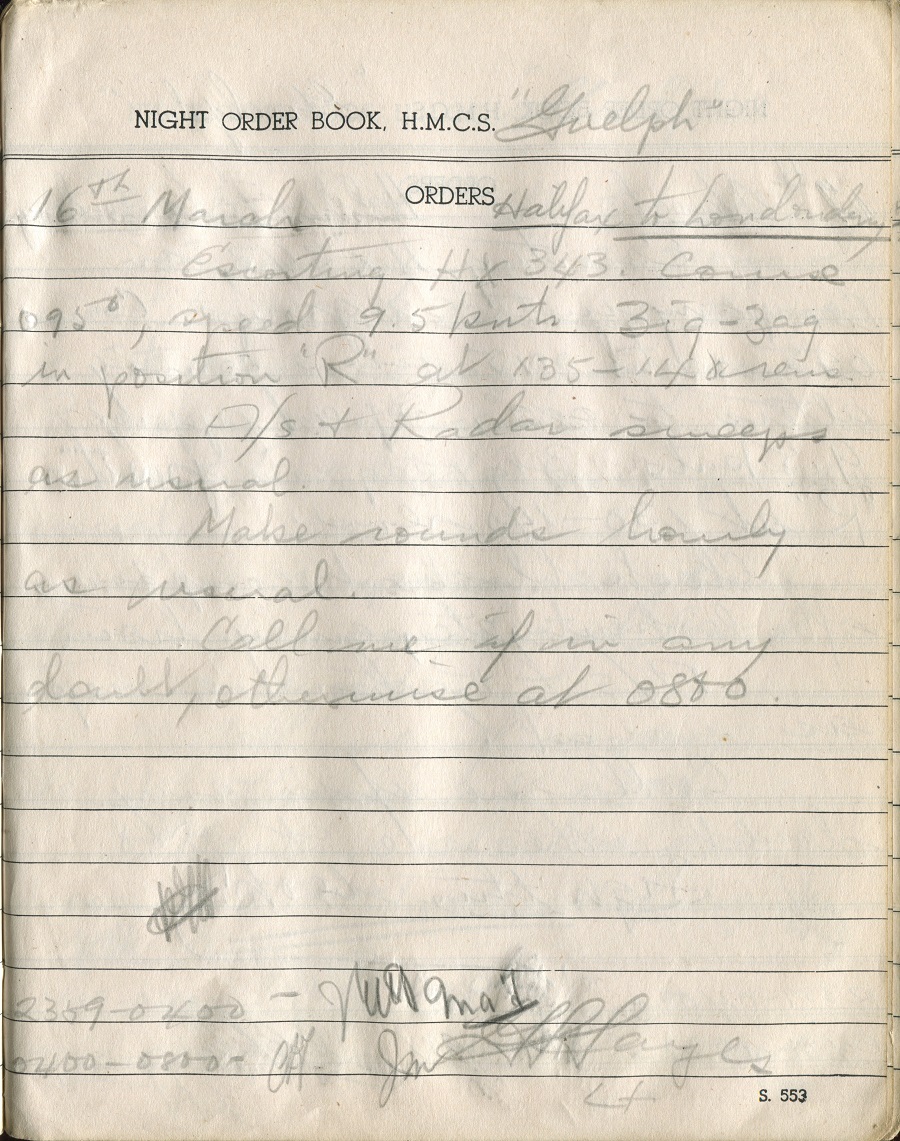 NIGHT ORDER BOOK, H.M.C.S. "Guelph"
ORDERS
16th March Halifax to Londonderry
Escorting HX 343. Course
095°, speed 9.5 knts. Zig-zag
in position "R" at 135-14 revs.
A/s + Radar sweeps
as usual.
Make rounds hourly
as usual.
Call me if in any
doubt, otherwise at 0800.
2359-0400 -
0400-0800- Hayes
Lt
S. 553